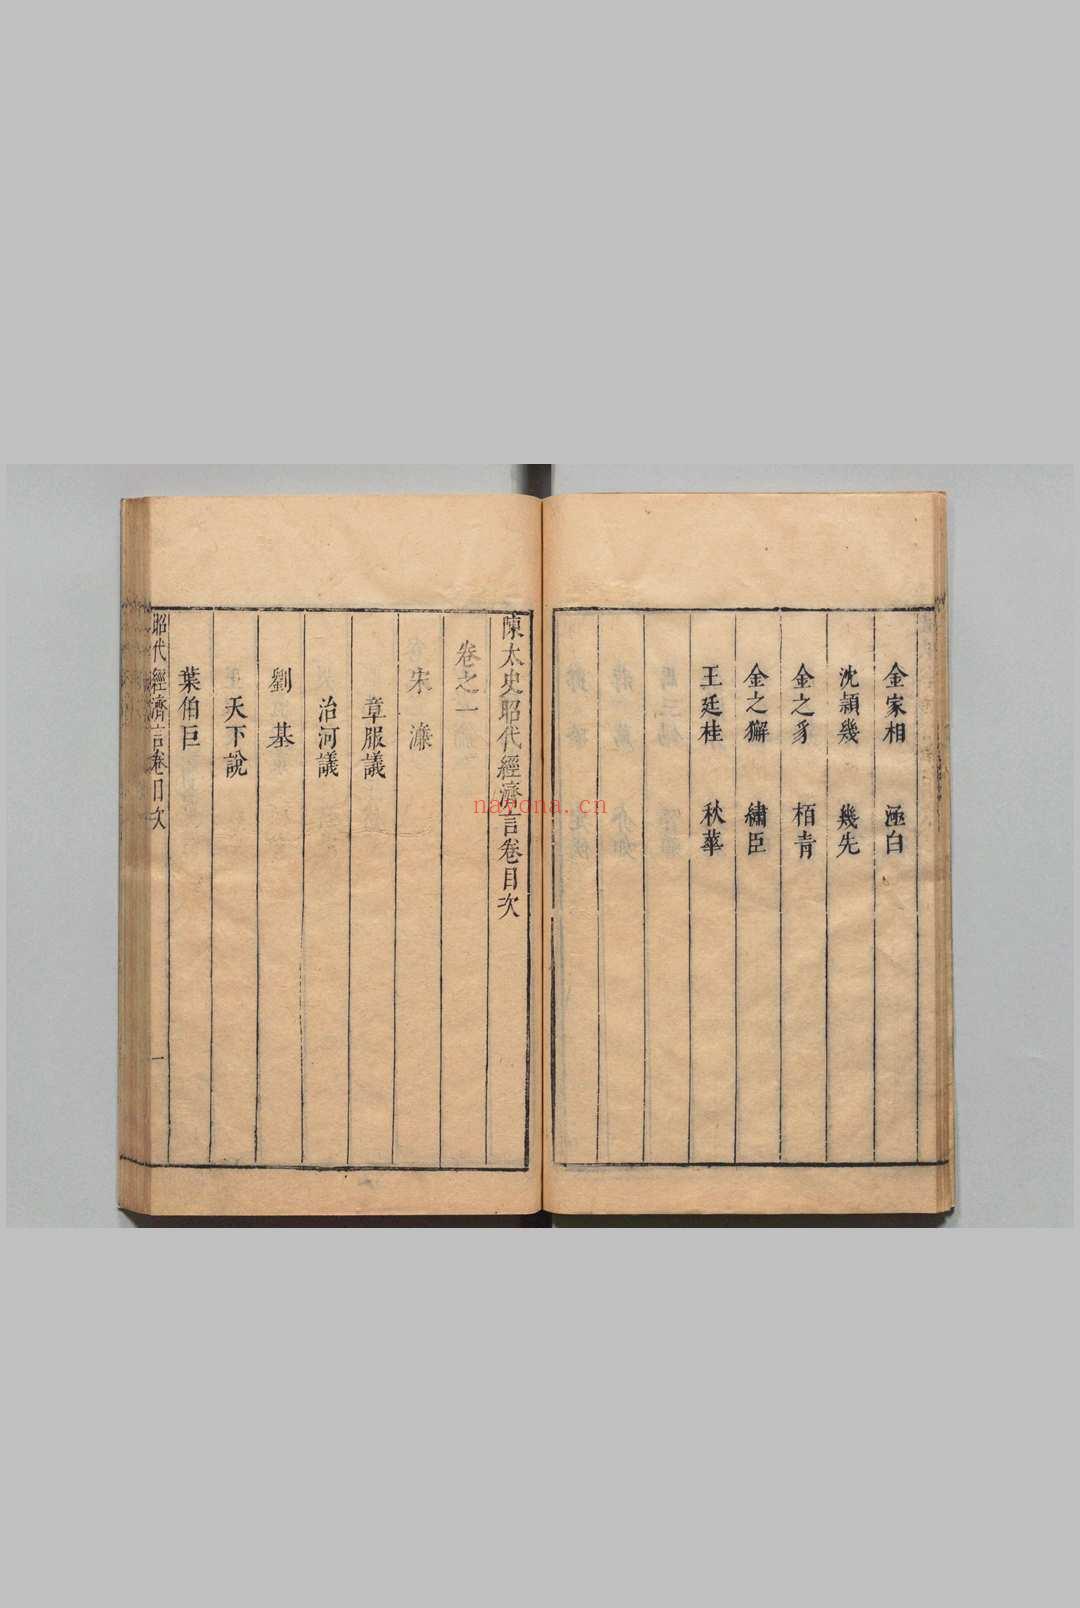 金家相 𠅤白
沈頴幾 幾先
金之豸 栢青
金之獬 繡臣
王廷桂 秋華
陳太史昭代經濟言卷目次
卷之一
宋濂
章服議
治河議
劉基
天下說
葉伯巨
昭代經濟言卷目次 一
nayona.cn